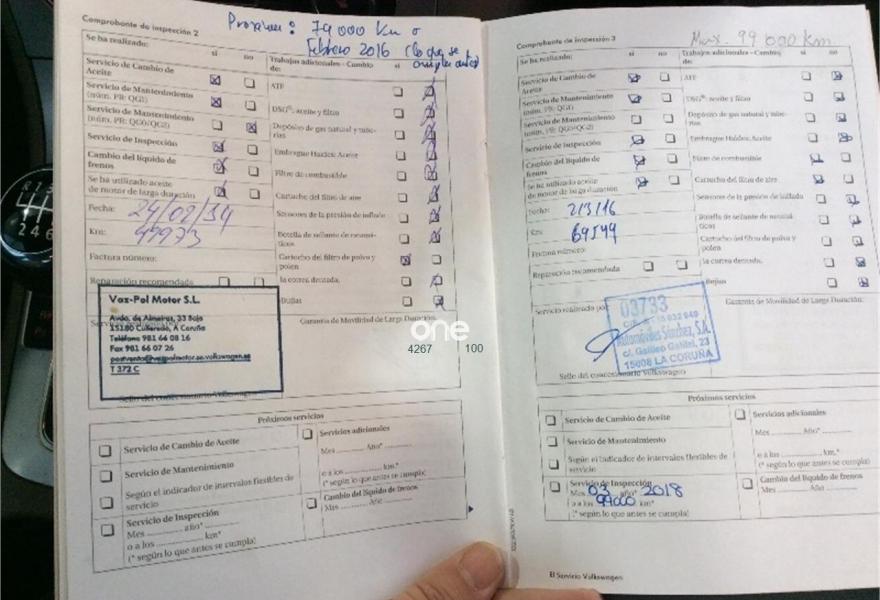 Comprobante de inspección 2
Proximo: 79000 Km o
Febrero 2016 (lo que se
Se ha realizado:
si
no
Trabajos adicionales - Cambio
de:
si
no
Servicio de Cambio de
Aceite
Servicio de Mantenimiento
(núm. PR: QG1)
Servicio de Mantenimiento
(núm. PR: QG0/QG2)
Servicio de Inspección
Cambio del líquido de
frenos
Se ha utilizado aceite
de motor de larga duración
Fecha:
Km:
Factura número:
Reparación recomendada
ATF
DSG®: aceite y filtro
Depósito de gas natural y tube-
rías
Embrague Haldex: Aceite
Filtro de combustible
Cartucho del filtro de aire
Sensores de la presión de inflado
Botella de sellante de neumá-
ticos
Cartucho del filtro de polvo y
polen
la correa dentada,
Bujías
Garantía de Movilidad de Larga Duración:
Vaz-Pol Motor S.L.
Avda. de Almeiras, 33 Bajo
15180 Culleredo, A Coruña
Teléfono 981 66 08 16
Fax 981 66 07 26
T 372 C
Sello del concesionario Volkswagen
Próximos servicios
Servicio de Cambio de Aceite
Servicio de Mantenimiento
Según el indicador de intervalos flexibles de
servicio
Servicio de Inspección
Mes año*
o a los km*
(* según lo que antes se cumpla)
Servicios adicionales
Mes Año*
o a los km*
(* según lo que antes se cumpla)
Cambio del líquido de frenos
Mes Año
one
4267 100
Comprobante de inspección 3
Max. 99000 km
Se ha realizado:
si
no
Trabajos adicionales - Cambio
de:
si
no
Servicio de Cambio de
Aceite
Servicio de Mantenimiento
(núm. PR: QG1)
Servicio de Mantenimiento
(núm. PR: QG0/QG2)
Servicio de Inspección
Cambio del líquido de
frenos
Se ha utilizado aceite
de motor de larga duración
Fecha: 2/3/16
Km: 69544
Factura número:
Reparación recomendada
ATF
DSG®: aceite y filtro
Depósito de gas natural y tube-
rías
Embrague Haldex: Aceite
Filtro de combustible
Cartucho del filtro de aire
Sensores de la presión de inflado
Botella de sellante de neumá-
ticos
Cartucho del filtro de polvo y
polen
la correa dentada,
Bujías
Garantía de Movilidad de Larga Duración:
Servicio realizado por:
03733
Automóviles Sánchez, S.A.
c/. Galileo Galilei, 23
15008 LA CORUÑA
Sello del concesionario Volkswagen
Próximos servicios
Servicio de Cambio de Aceite
Servicio de Mantenimiento
Según el indicador de intervalos flexibles de
servicio
Servicio de Inspección
Mes 03 año* 2018
o a los 99000 km*
(* según lo que antes se cumpla)
Servicios adicionales
Mes Año*
o a los km*
(* según lo que antes se cumpla)
Cambio del líquido de frenos
Mes Año
El Servicio Volkswagen